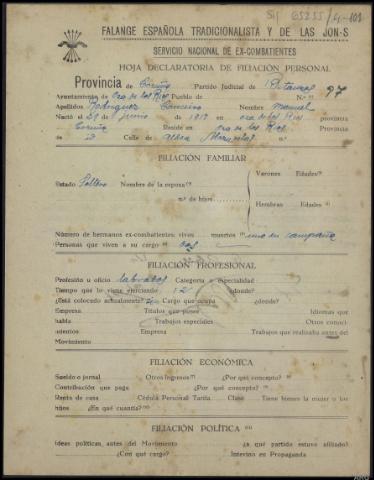 SIJ 65235/4-103
FALANGE ESPAÑOLA TRADICIONALISTA Y DE LAS JON-S
SERVICIO NACIONAL DE EX-COMBATIENTES
HOJA DECLARATORIA DE FILIACIÓN PERSONAL
Provincia de Coruña Partido Judicial de Betanzos 97
Ayuntamiento de Oza de los Rios Pueblo de N.º
Apellidos Rodriguez Nombre Manuel
Nació el 29 de junio de 1917 en Oza de los Rios provincia
Coruña Reside en Oza de los Rios Provincia
de Calle de Aldea
FILIACIÓN FAMILIAR
Varones Edades
Estado Soltero Nombre de la esposa
n.º de hijos
Hembras Edades
Número de hermanos ex-combatientes: vivos muertos uno en campaña
Personas que viven a su cargo dos
FILIACIÓN PROFESIONAL
Profesión u oficio labrador Categoría o especialidad
Tiempo que lo viene ejerciendo 12 ¿dónde?
¿Está colocado actualmente? Cargo que ocupa ¿dónde?
Empresa Títulos que posee Idiomas que
habla Trabajos especiales Otros conoci-
mientos Empresa Trabajos que realizaba antes del
Movimiento
FILIACIÓN ECONÓMICA
Sueldo o jornal Otros ingresos ¿Por qué concepto?
Contribución que paga ¿Por qué concepto?
Renta de casa Cédula Personal Tarifa Clase Tiene bienes la mujer o los
hijos ¿En qué cuantía?
FILIACIÓN POLÍTICA
Ideas políticas, antes del Movimiento ¿A qué partido estuvo afiliado?
¿Con qué cargo? Intervino en Propaganda